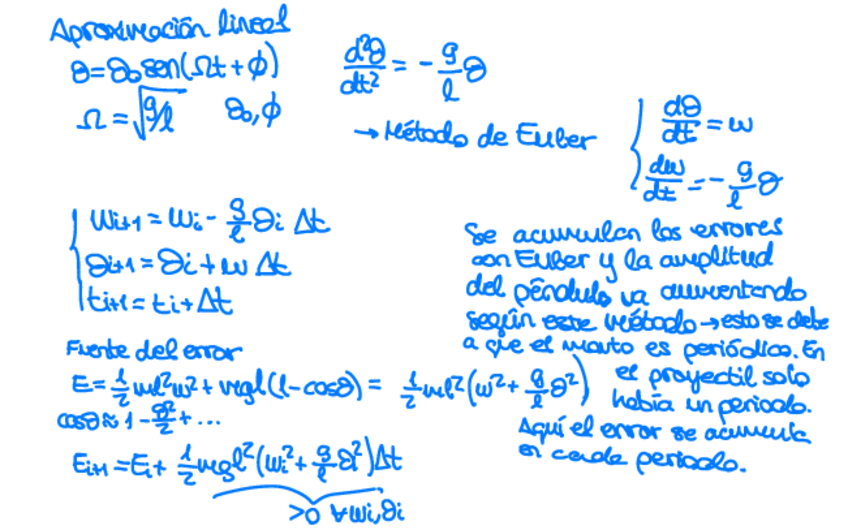 Aproximación lineal
θ=θ₀ sen(Ωt+ϕ)
Ω=√g/l    θ₀,ϕ
d²θ/dt² = -g/l θ
→ Método de Euler
{ dθ/dt = w
dw/dt = -g/l θ
{ Wi+1 = Wi - g/l θi Δt
θi+1 = θi + w Δt
ti+1 = ti + Δt
Se acumulan los errores
con Euler y la amplitud
del péndulo va aumentando
según este método → esto se debe
a que el mvto es periódico. En
el proyectil solo
había un periodo.
Aquí el error se acumula
en cada periodo.
Fuente del error
E = 1/2 ml²w² + mgl(1-cosθ) = 1/2 ml²(w² + g/l θ²)
cosθ ≈ 1 - θ²/2 + ...
Ei+1 = Ei + 1/2 mgl²(wi² + g/l θi²)Δt
>0 ∀wi,θi